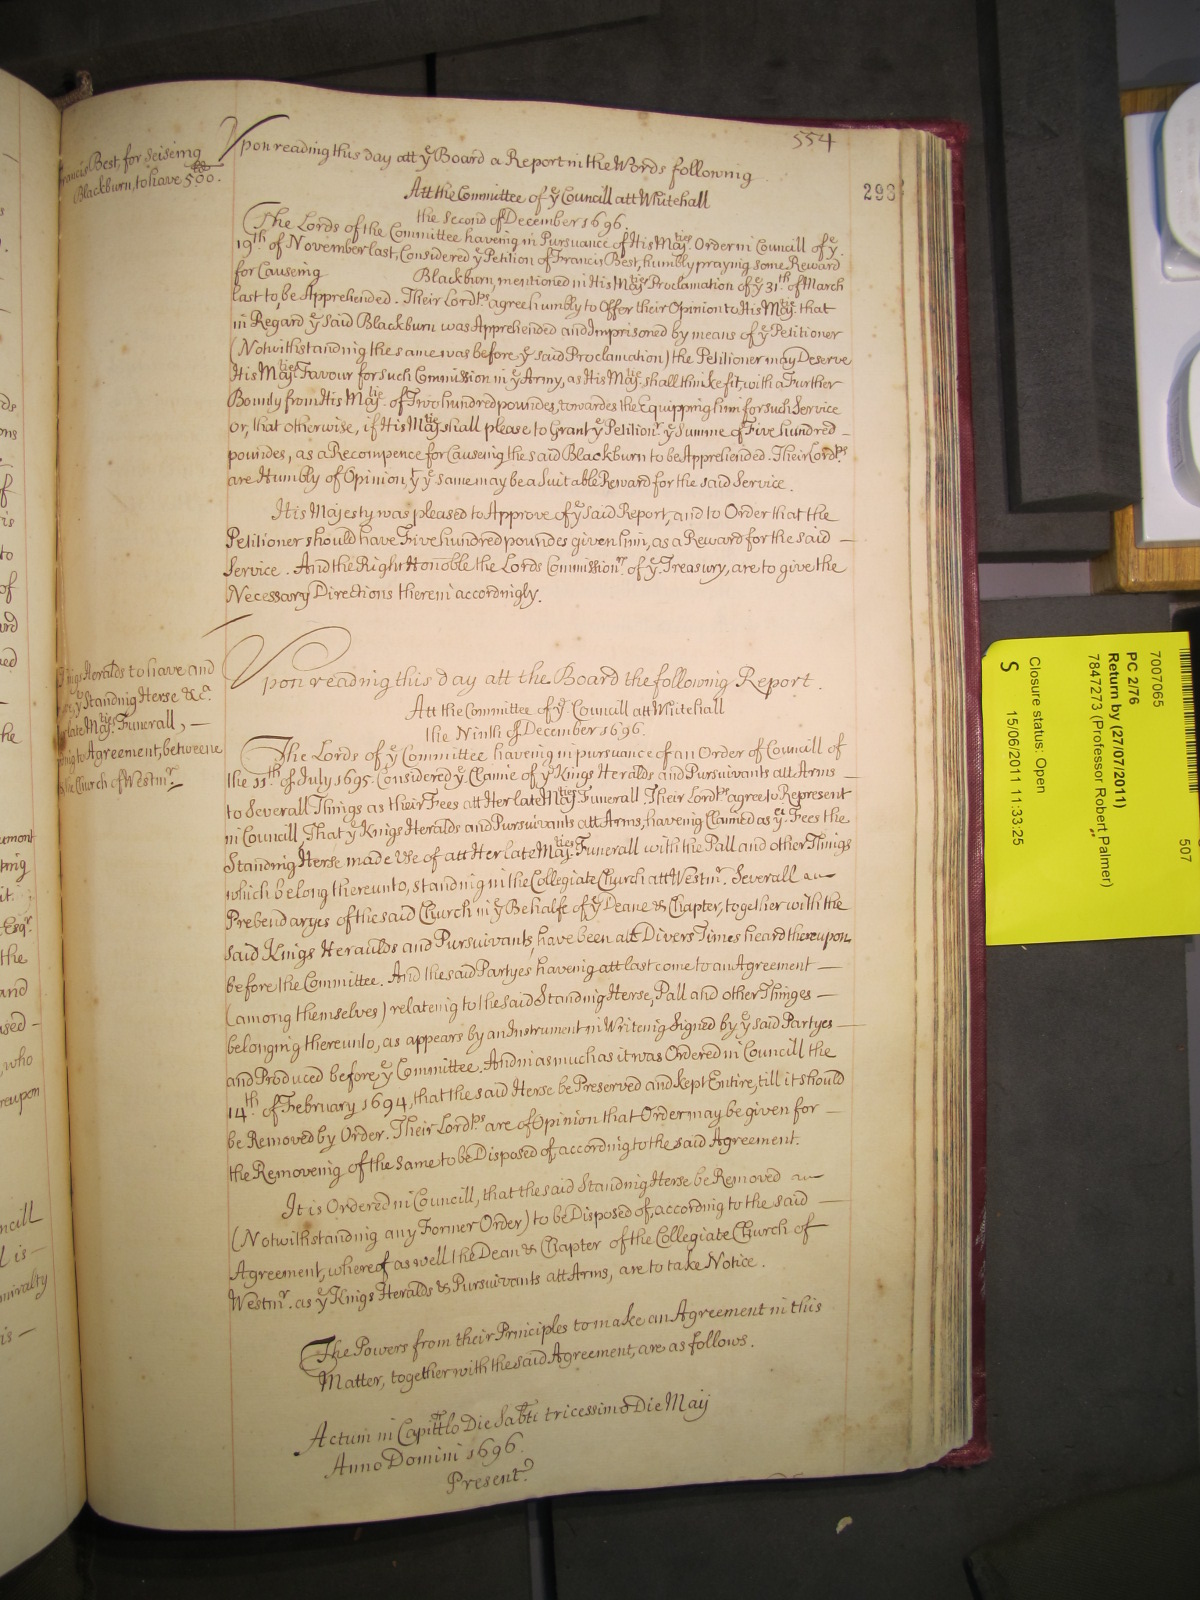 554
293
Francis Best, for Seiseing
Blackburn, to have 500.
Vpon reading this day att yͤ Board a Report in the Words following
Att the Committee of yͤ Councill att Whitehall
the Second of December 1696.
The Lords of the Committee haveing in Pursuance of His Maj.ᵗⁱᵉˢ Order in Councill of yͤ.
19ᵗʰ of November last, Considered yͤ Petition of Francis Best, humbly praying some Reward
for Causeing Blackburn, mentioned in His Maj.ᵗⁱᵉˢ Proclamation of yͤ 31ᵗʰ of March
last to be Apprehended. Their Lordᵖˢ agree humbly to Offer their Opinion to His Maj.ᵗⁱᵉ that
in Regard yͤ Said Blackburn was Apprehended and Imprisoned by means of yͤ Petitioner
(Notwithstanding the same was before yͤ said Proclamation) the Petitioner may Deserve
His Maj.ᵗⁱᵉˢ Favour for such Commission in yͤ Army, as His Maj.ᵗⁱᵉ shall thinke fit, with a Further
Bounty from His Maj.ᵗⁱᵉ of Two hundred poundes, towardes the Equipping him for such Service
or, that otherwise, if His Maj.ᵗⁱᵉ shall please to Grant yͤ Petitionʳ yͤ Summe of Five hundred –
poundes, as a Recompence for Causeing the said Blackburn to be Apprehended. Their Lordᵖˢ
are Humbly of Opinion, yᵗ yͤ same may be a Suitable Reward for the said Service.
His Majesty was pleased to Approve of yͤ Said Report, and to Order that the
Petitioner should have Five hundred poundes given him, as a Reward for the said –
Service. And the Right Honoble the Lords Commissionʳˢ of yͤ Treasury, are to give the
Necessary Directions therein accordingly.
Kings Heralds to have and
yͤ Standing Herse &cᵃ.
late Maj.ᵗⁱᵉˢ Funerall, –
to Agreement, betweene
the Church of Westmʳ.
Vpon reading this day att the Board the following Report.
Att the Committee of yͤ Council att Whitehall
the Ninth of December 1696.
The Lords of yͤ Committee haveing in pursuance of an Order of Councill of
the 11ᵗʰ of July 1695. Considered yͤ Claime of yͤ Kings Heralds and Pursuivants att Arms –
to Severall Things as their Fees att Her late Maj.ᵗⁱᵉˢ Funerall. Their Lordᵖˢ agree to Represent
in Councill That yͤ Kings Heralds and Pursuivants att Arms, haveing Claimed as yͤ Fees the
Standing Herse made Use of att Her late Maj.ᵗⁱᵉˢ Funerall with the Pall and other Things
which belong thereunto, standing in the Collegiate Church att Westmʳ. Severall
Prebendaryes of the said Church in yͤ Behalfe of yͤ Deane & Chapter, together with the
said Kings Heraulds and Pursuivants, have been att Divers Times heard thereupon
before the Committee. And the said Partyes haveing att last come to an Agreement –
(among themselves) relateing to the said Standing Herse, Pall and other Thinges –
belonging thereunto, as appears by an Instrument in Writeing Signed by yͤ said Partyes –
and Produced before yͤ Committee. And in as much as it was Ordered in Councill the
14ᵗʰ of February 1694, that the said Herse be Preserved and kept Entire, till it should
be Removed by Order. Their Lordᵖˢ are of Opinion that Order may be given for –
the Removeing of the Same to be Disposed of, according to the said Agreement.
It is Ordered in Councill, that the said Standing Herse be Removed
(Notwithstanding any Former Order) to be Disposed of, according to the said –
Agreement, whereof as well the Dean & Chapter of the Collegiate Church of
Westmʳ. as yͤ Kings Heralds & Pursuivants att Arms, are to take Notice.
The Powers from their Principles to make an Agreement in this
Matter, together with the said Agreement, are as follows.
Actum in Capittlo Die Sabti tricessimo Die Maij
Anno Domini 1696.
Present
7007065
507
PC 2/76
Return by (27/07/2011)
7847273 (Professor Robert Palmer)
Closure status: Open
15/06/2011 11:33:25
S